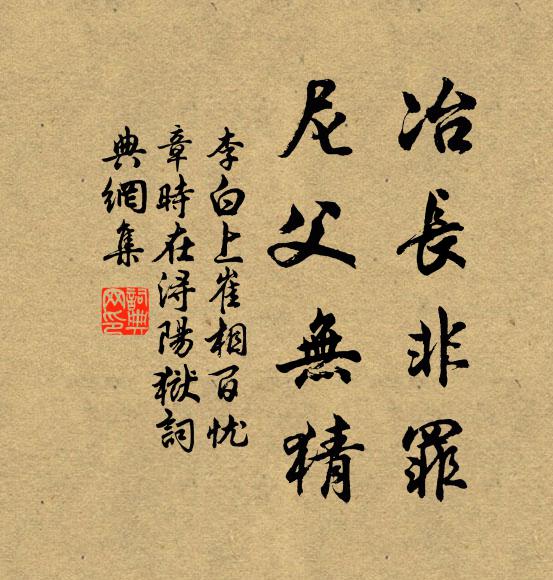 冶長非罪
尼父無猜
李白上崔相百忧
章時在浔陽獄詞
典網集
詞典網印